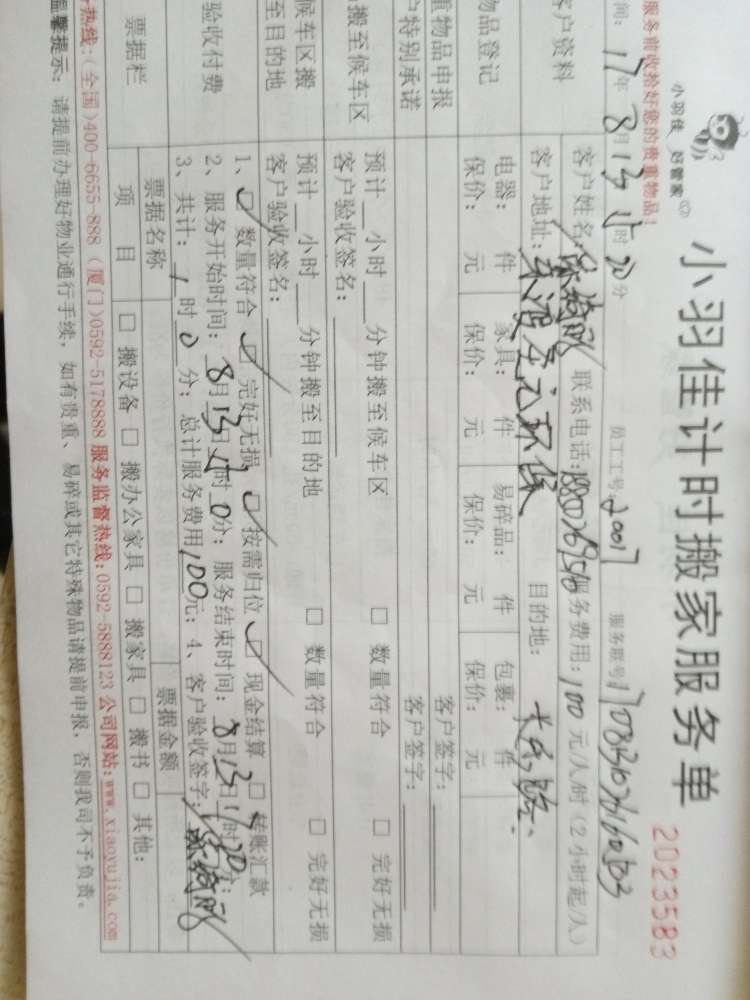 小羽佳 好管家
小羽佳计时搬家服务单
2023583
服务前收拾好您的贵重物品!
间: 17年8月13 15时20分 员工工号: 2007 服务联号:
客户资料 客户姓名: 联系电话: 服务费用: 100元/人/时(2小时起/人)
客户地址: 目的地:
物品登记 电器: 件 家具: 件 易碎品: 件 包裹: 件
保价: 元 保价: 元 保价: 元 保价: 元
重物品申报 客户签字:
户特别承诺 客户签字:
搬至候车区 预计 小时 分钟搬至候车区 □ 数量符合 □ 完好无损
客户验收签名:
候车区搬 预计 小时 分钟搬至目的地 □ 数量符合 □ 完好无损
至目的地 客户验收签名:
验收付费 1、☑ 数量符合 ☑ 完好无损 ☑ 按需归位 ☑ 现金结算 □ 转账汇款
2、服务开始时间: 8月13日 时0分; 服务结束时间: 8月13日 时 分;
3、共计: 1时0分; 总计服务费用100元; 4、客户验收签字:
票据栏 票据名称 票据金额
项目 □ 搬设备 □ 搬办公家具 □ 搬家具 □ 搬书 □ 其他:
热线:(全国)400-6655-888 (厦门)0592-5178888 服务监督热线:0592-5888123 公司网站:www.xiaoyujia.com
温馨提示: 请提前办理好物业通行手续, 如有贵重、易碎或其它特殊物品请提前申报, 否则我司不予负责。